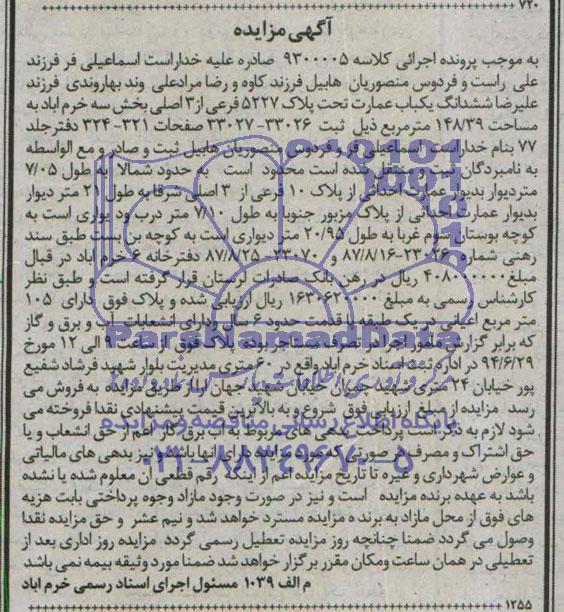 ۷۲۰
آگهی مزایده
به موجب پرونده اجرائی کلاسه ۹۳۰۰۰۰۵ صادره علیه خداراست اسماعیلی فر فرزند
علی راست و فردوس منصوریان هابیل فرزند کاوه و رضا مرادعلی وند بهاروندی فرزند
علیرضا ششدانگ یکباب عمارت تحت پلاک ۵۲۲۷ فرعی از ۳ اصلی بخش سه خرم اباد به
مساحت ۱۴۸/۳۹ مترمربع ذیل ثبت ۳۳۰۲۶- ۳۳۰۲۷ صفحات ۳۲۱- ۳۲۴ دفترجلد
۷۷ بنام خداراست اسماعیلی فر و فردوس منصوریان هابیل ثبت و صادر و مع الواسطه
به نامبردگان ثبت و منتقل شده است محدود است به حدود شمالا به طول ۷/۰۵
متردیوار بدیوار عمارت احداثی از پلاک ۱۰ فرعی از ۳ اصلی شرقا به طول ۲۱ متر دیوار
بدیوار عمارت احداثی از پلاک مزبور جنوبا به طول ۷/۱۰ متر درب ود یواری است به
کوچه بوستان سوم غربا به طول ۲۰/۹۵ متر دیواری است به کوچه بن بست طبق سند
رهنی شماره ۲۳۰۲۶-۸۷/۸/۱۶ و ۲۳۰۷۰-۸۷/۸/۲۵ دفترخانه ۶ خرم اباد در قبال
مبلغ ۴۰۸۰۰۰۰۰۰ ریال در رهن بانک صادرات لرستان قرار گرفته است و طبق نظر
کارشناس رسمی به مبلغ ۱۶۳۰۶۲۰۰۰۰ ریال ارزیابی شده و پلاک فوق دارای ۱۰۵
متر مربع اعیانی در یک طبقه با قدمت حدود ۶ سال ودارای انشعابات آب و برق و گاز
که برابر گزارش مامور اجرا در تصرف مستاجر بوده پلاک فوق از ساعت ۹ الی ۱۲ مورخ
۹۴/۶/۲۹ در اداره ثبت اسناد خرم اباد واقع در متری مدیریت بلوار شهید فرشاد شفیع
پور خیابان ۲۴ متری شهید چمران خیابان شهید جهان ارا از طریق مزایده به فروش می
رسد مزایده از مبلغ ارزیابی فوق شروع و به بالاترین قیمت پیشنهادی نقدا فروخته می
شود لازم به ذکر است پرداخت بدهی های مربوط به آب برق گاز اعم از حق انشعاب و یا
حق اشتراک و مصرف در صورتی که مورد مزایده دارای انها باشد و نیز بدهی های مالیاتی
و عوارض شهرداری و غیره تا تاریخ مزایده اعم از اینکه رقم قطعی ان معلوم شده یا نشده
باشد به عهده برنده مزایده است و نیز در صورت وجود مازاد وجوه پرداختی بابت هزینه
های فوق از محل مازاد به برند ه مزایده مسترد خواهد شد و نیم عشر و حق مزایده نقدا
وصول می گردد ضمنا چنانچه روز مزایده تعطیل رسمی گردد مزایده روز اداری بعد از
تعطیلی در همان ساعت ومکان مقرر برگزار خواهد شد ضمنا مورد وثیقه بیمه نمی باشد
م الف ۱۰۳۹ مسئول اجرای اسناد رسمی خرم اباد
۱۲۵۵
ParsNamadData
پایگاه اطلاع رسانی مناقصه و مزایده
۰۲۱-۸۸۳۴۹۶۷۰-۵